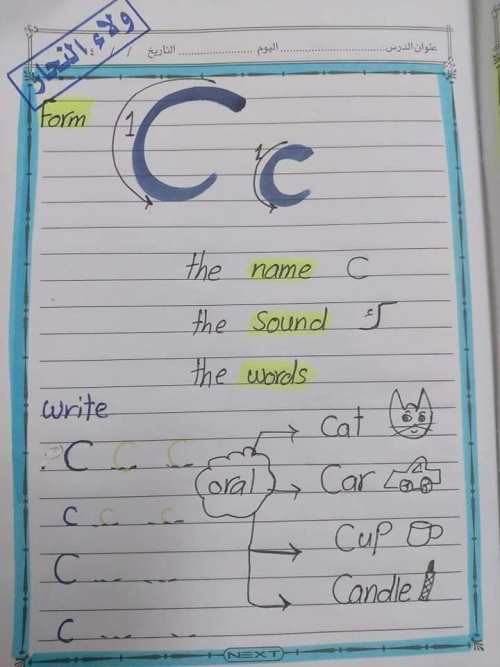 ولاء النجار
عنوان الدرس ........ اليوم ........ التاريخ / /
Form
1 C 1 c
the name C
the sound ك
the words
write
C C C
c c c
C
c
oral
Cat
Car
Cup
Candle
NEXT